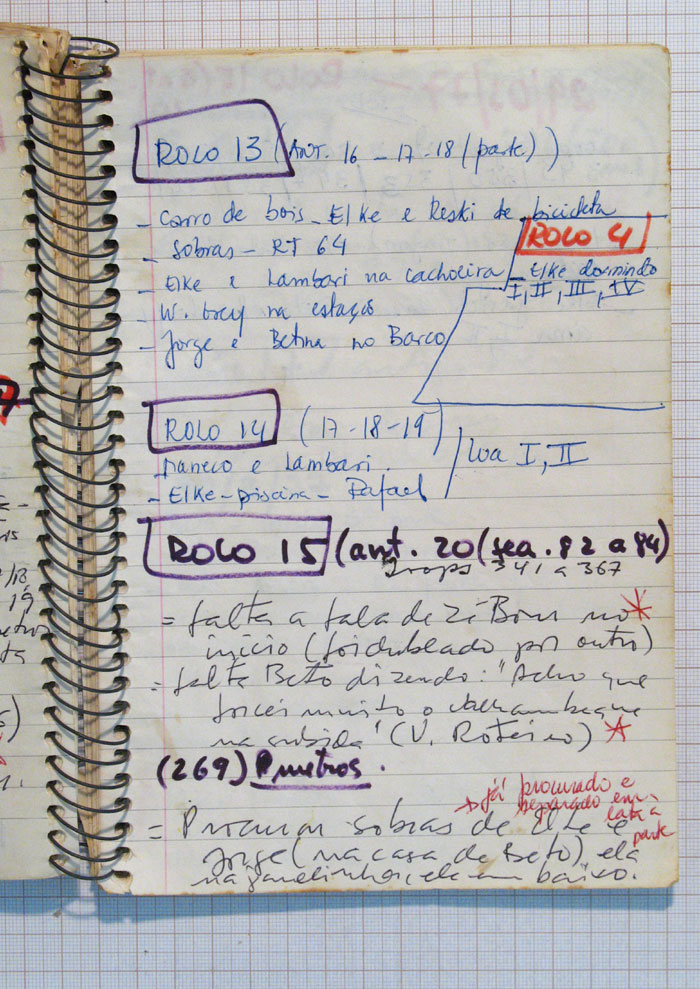 ROLO 13 (ANT. 16 - 17 - 18 (parte))
- Carro de bois - Elke e Reski de bicicleta
- Sobras - RT 64
ROLO 4
- Elke e Lambari na cachoeira
- Elke dormindo
I, II, III, IV
- W. Grey na estação
- Jorge e Betina no Barco
ROLO 14 (17-18-19)
Maneco e Lambari.
Lua I, II
- Elke - piscina - Rafael
ROLO 15 (ant. 20 (seq. 82 a 84)
341 a 367
= falta a fala de Zé Bom no *
início (foi dublado por outro)
= falta Beto dizendo: "Acho que
forcei muito o calhambeque
na subida" (V. Roteiro) *
(269) P metros.
→ já procurado e
separado em
lata à
parte
= Procurar sobras de Elke e
Jorge (na casa de Beto), ela
na janelinha, ele em baixo.